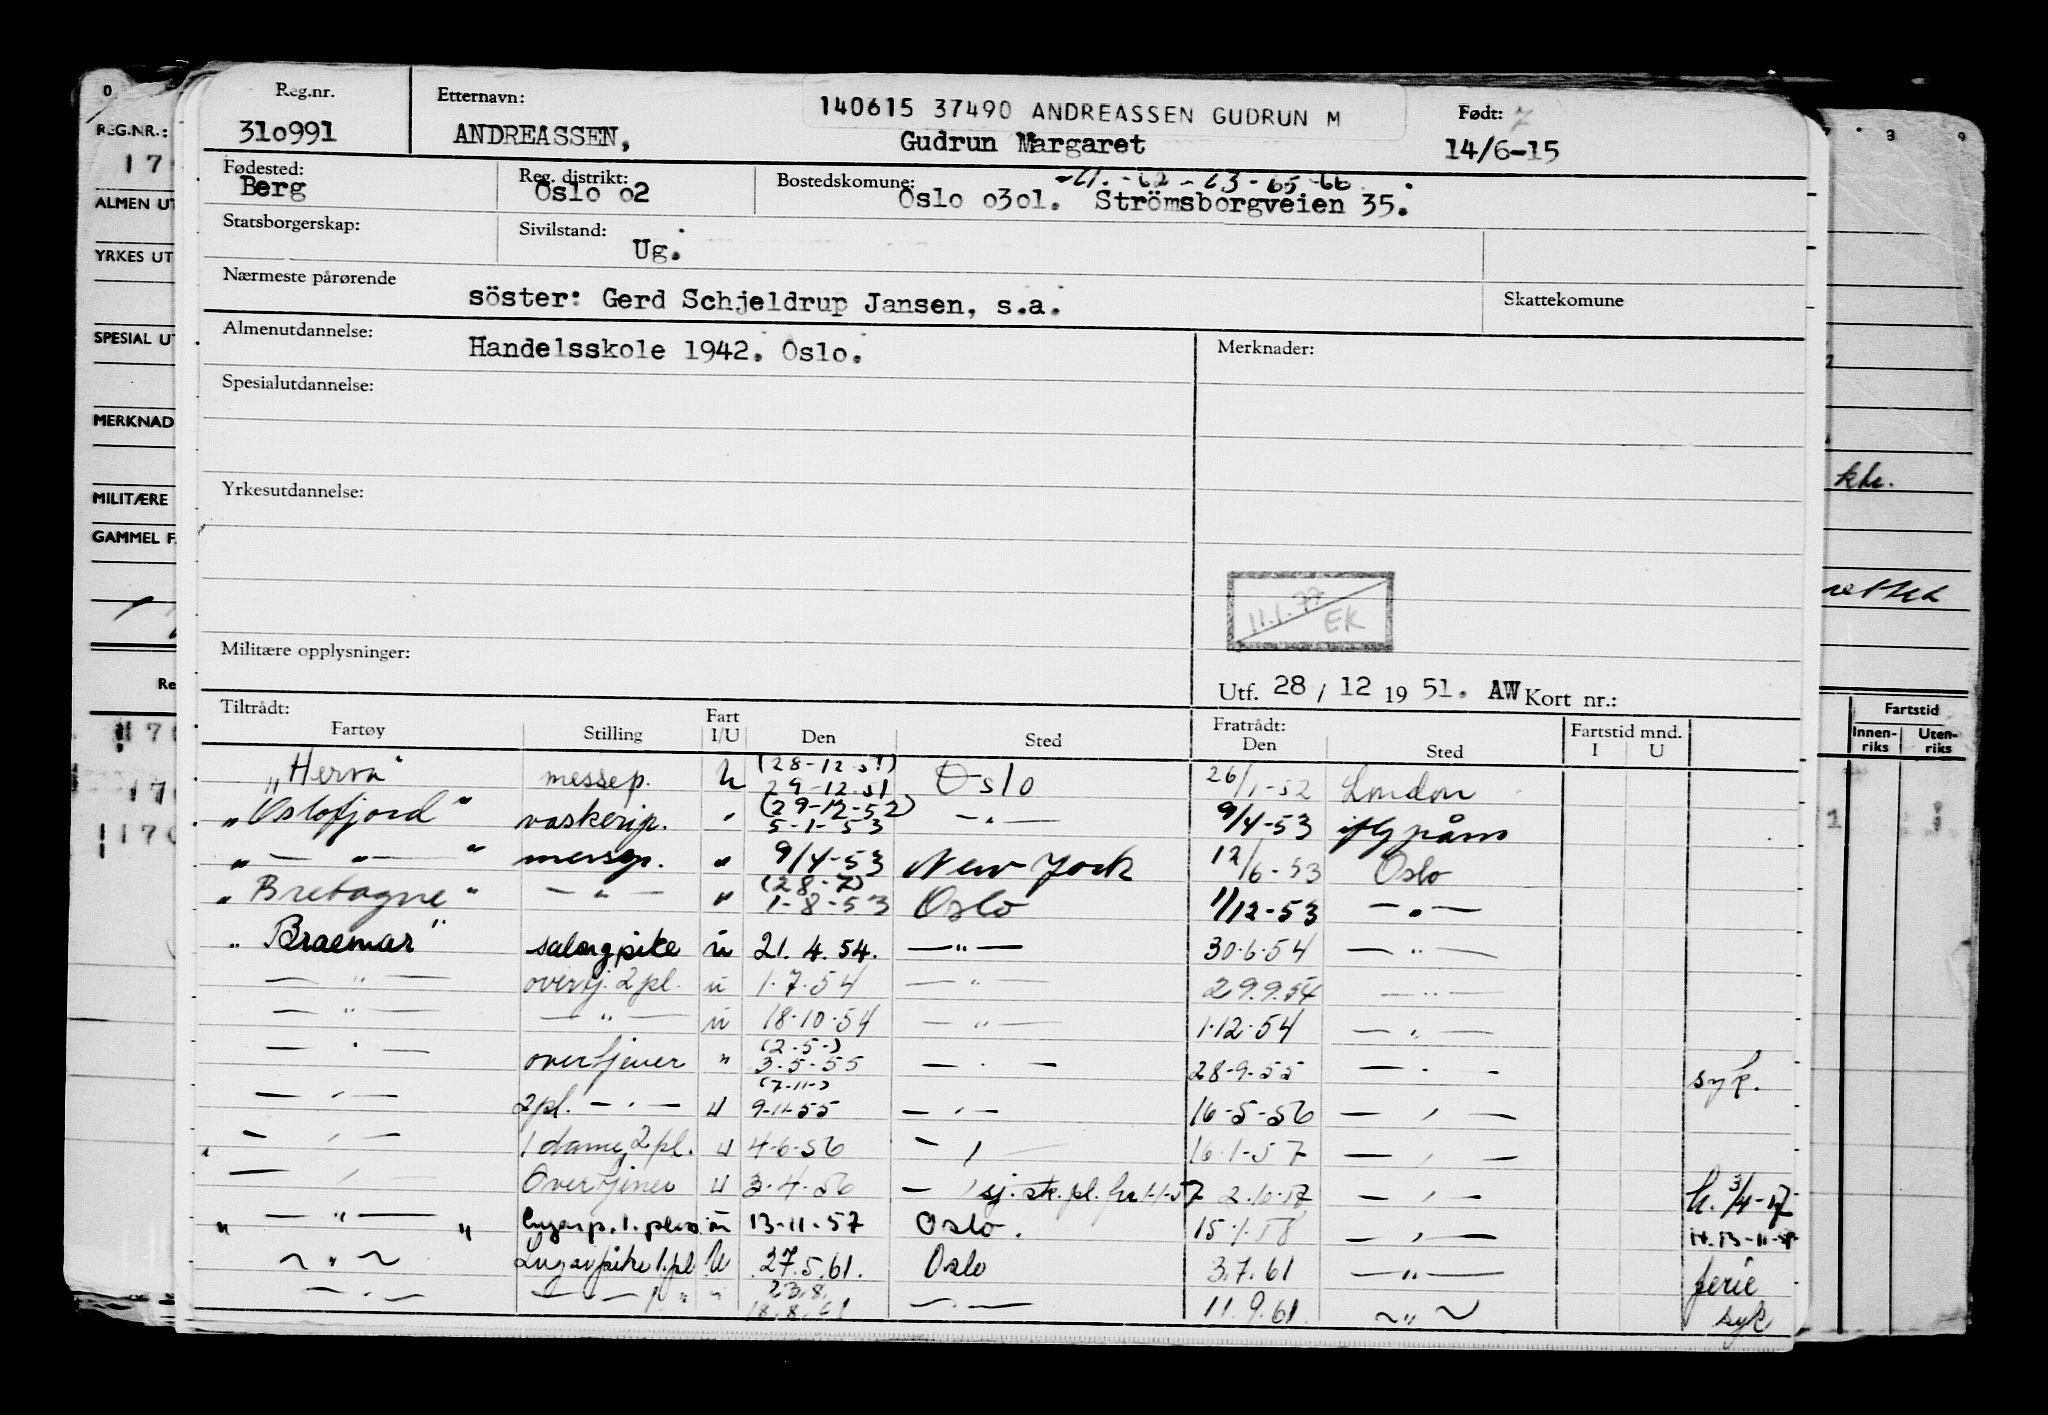 O
REG.NR.:
17
ALMEN UT
YRKES UT
SPECIAL UT
MERKNAD
MILITÆRE
GAMMEL F
Re
170
170
170
Reg.nr. Etternavn: 140615 37490 ANDREASSEN GUDRUN M Født:
310991 ANDREASSEN, Gudrun Margaret 14/6-15
Fødested: Reg. distrikt: Bostedskomune: -61.-62-63-65-66
Berg Oslo o2 Oslo o3o1. Strömsborgveien 35.
Statsborgerskap: Sivilstand:
Ug.
Nærmeste pårørende
söster: Gerd Schjeldrup Jansen, s.a. Skattekomune
Almenutdannelse: Merknader:
Handelsskole 1942. Oslo.
Spesialutdannelse:
Yrkesutdannelse:
11.1.77 EK
Militære opplysninger:
Utf. 28 / 12 1951. AW Kort nr.:
Tiltrådt: Fart Fratrådt: Fartstid mnd.
Fartøy Stilling I/U Den Sted Den Sted I U
(28-12-51)
"Herva" messep. U 29-12-51 Oslo 26/1-52 London
(29-12-52)
"Oslofjord" vaskerip. " 5-1-53 — " — 9/4-53 iflg påm
" — " — " messep. " 9/4-53 New York 12/6-53 Oslo
(28-7)
"Bretagne" — " — " 1-8-53 Oslo 1/12-53 — " —
"Braemar" salongpike u 21.4.54. — " — 30.6.54 — " —
— " — overtj. 2 pl. u 1.7.54 — " — 29.9.54 — " —
— " — — " — u 18.10.54 — " — 1.12.54 — " —
(2-5-)
— " — overtjener " 3-5-55 — " — 28-9-55 — " — syk.
(7-11-)
— " — 2pl. — " — u 9-11-55 — " — 16-5-56 — " —
— " — 1 dame 2 pl. u 4-6-56 — " 16-1-57 — " —
— " — Overtjener u 3-4-56 — " sj. sk. pl. fra 1-1-57 2.10.57 — " — h. 3/4-57
" — " — " lugarp. 1. plass u 13-11-57 Oslo. 15.1.58 — " — H. 13-11-57
~ " ~ Lugarpike 1. pl U 27.5.61. Oslo 3.7.61 — " — ferie
23.8.
— " — — " — " " 18.8.61 — " — 11.9.61. ~ " ~ syk.
3 9
khr.
Fartstid
Innen-riks Uten-riks
1 1